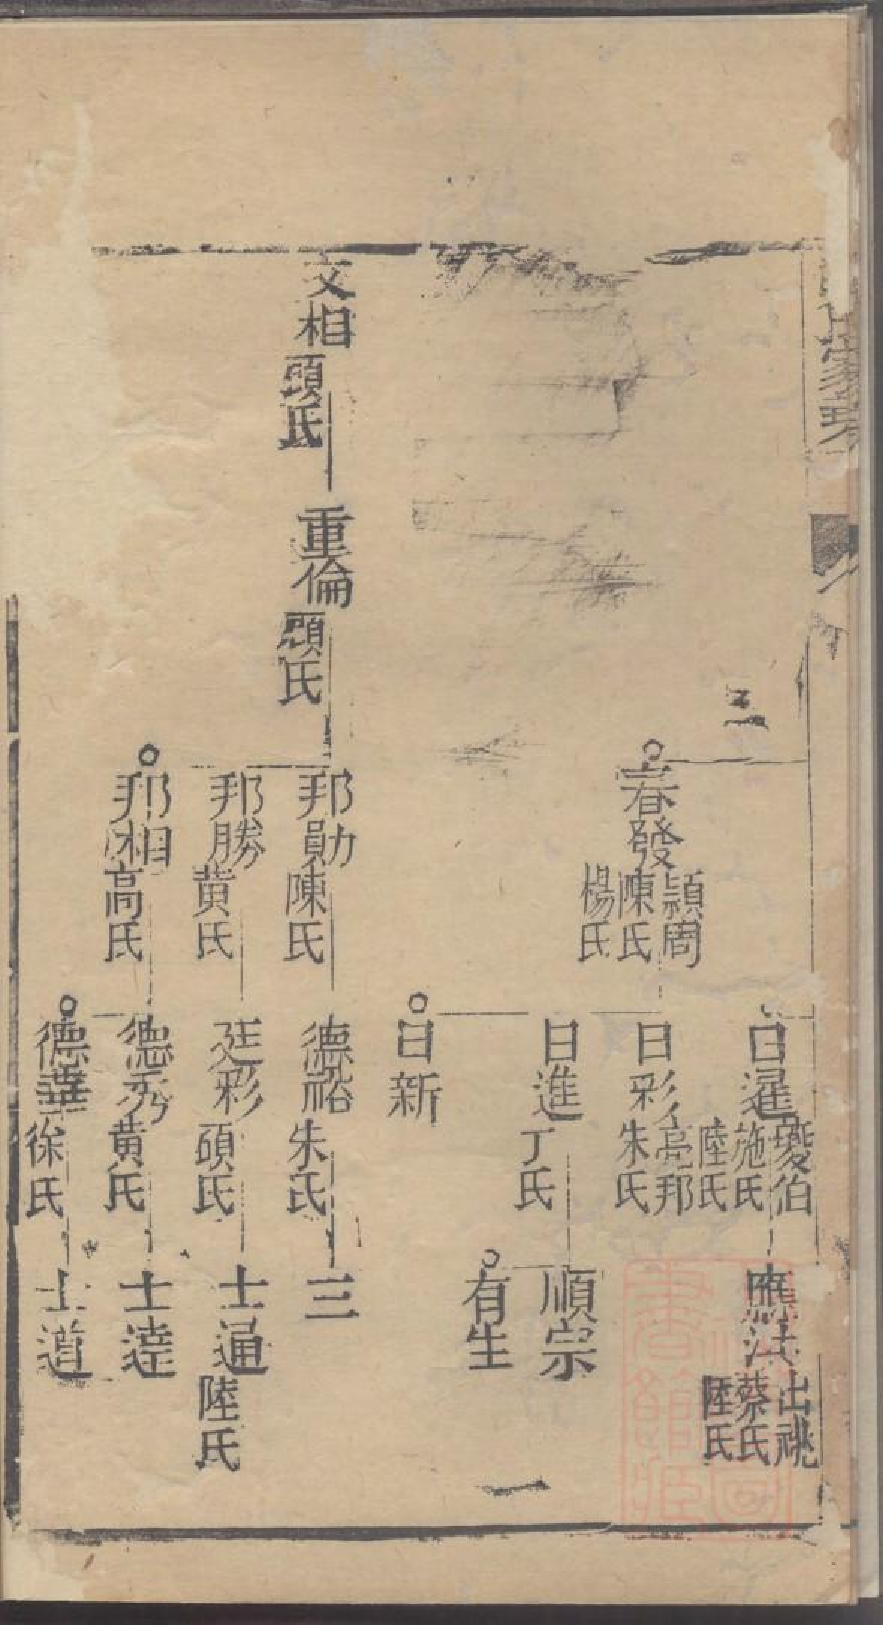 三
春發
頴周
陳氏
楊氏
日暹
慶伯
施氏
陸氏
日彩
亮邦
朱氏
日進
丁氏
日新
應法
出祧
蔡氏
陸氏
順宗
有生
一
文相
頭氏
重倫
顧氏
邦勛
陳氏
邦勝
黄氏
邦相
高氏
德裕
朱氏
廷彩
碩氏
德秀
黄氏
德華
徐氏
三
士通
陸氏
士達
士道